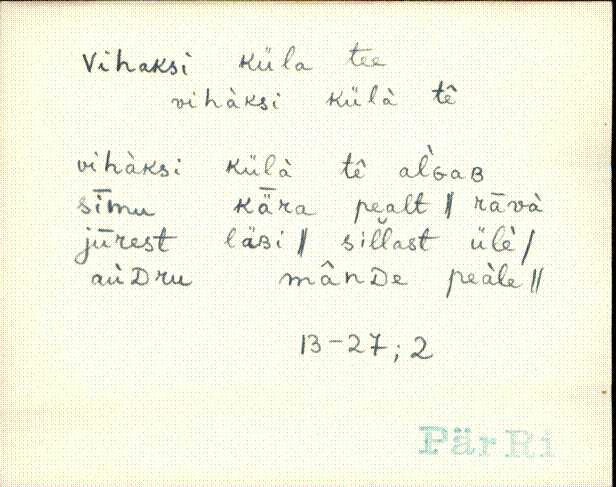 Vihaksi küla tee
vihàksi külà tê
vihàksi külà tê al̀GAB
sīmu kǟra pealt || rāvà
jūrest läBi || sil̆last ülè /
aùDru mânDe peàle ||
13-27; 2
Pär Ri